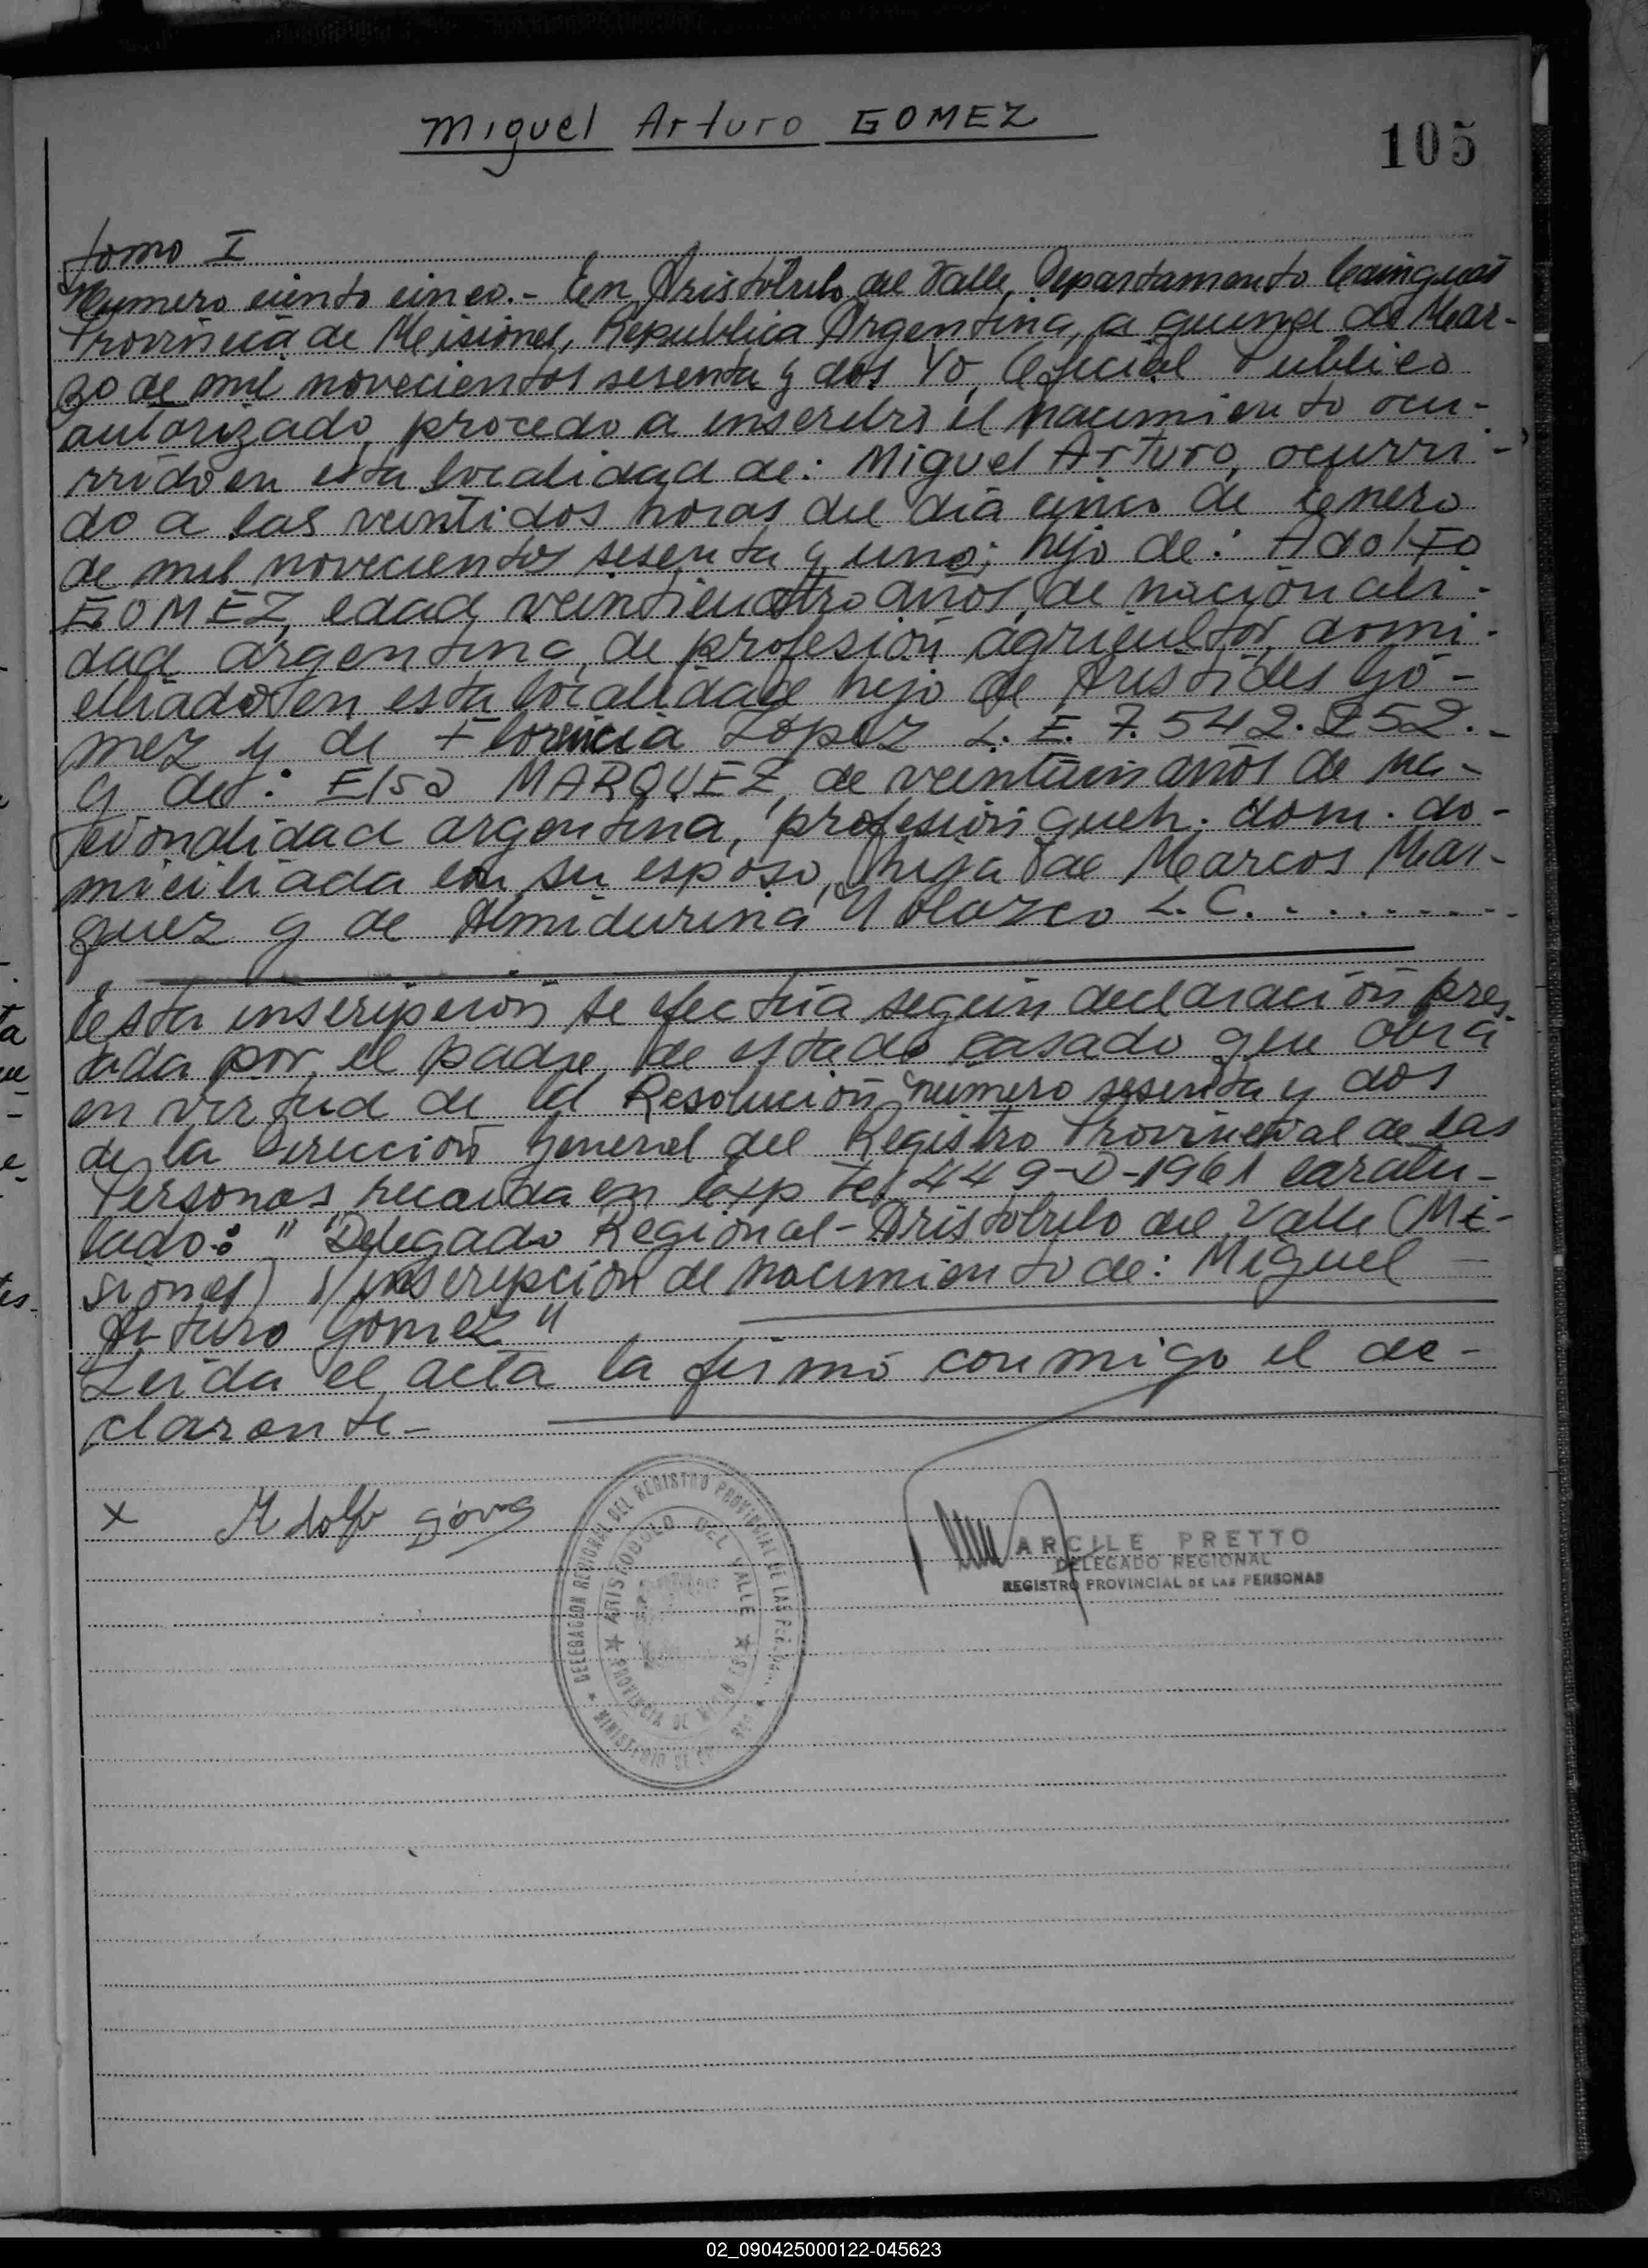 Miguel Arturo GOMEZ
105
tomo I
Numero ciento cinco.- En Aristobulo del Valle, Departamento Cainguas
Provincia de Misiones, Republica Argentina, a quince de Mar-
zo de mil novecientos sesenta y dos Yo, Oficial Publico
autorizado, procedo a inscribir el nacimiento ocu-
rrido en esta localidad de: Miguel Arturo, ocurri-
do a las veintidos horas del dia cinco de Enero
de mil novecientos sesenta y uno; hijo de: Adolfo
GOMEZ, edad veinticuatro años, de nacionali-
dad argentina, de profesión agricultor, domi-
ciliado en esta localidad hijo de Aristides Gó-
mez y de Florencia Lopez L. E. 7.542.252.-
y de: Elsa MARQUEZ, de años de na-
cionalidad argentina, profesión queh. dom. do-
miciliada con su esposo, hija de Marcos Mar-
quez y de L. C. . . . . . . . . .
Esta inscripción se efectúa según declaración pres
tada por el padre, de estado casado que obra
en virtud de la Resolución número sesenta y dos
de la Dirección General del Registro Provincial de las
Personas, recaida en Exp te. 449-D-1961 caratu-
lado: "Delegado Regional - Aristobulo del Valle (Mi-
siones) s/ inscripción de nacimiento de: Miguel
Arturo Gomez"
Leida el acta la firmó conmigo el de-
clarante-
x Adolfo
DELEGACION REGIONAL DEL REGISTRO PROVINCIAL DE LAS
ARISTOBULO DEL VALLE
PROVINCIA DE
MARCILE PRETTO
DELEGADO REGIONAL
REGISTRO PROVINCIAL DE LAS PERSONAS
02_090425000122-045623